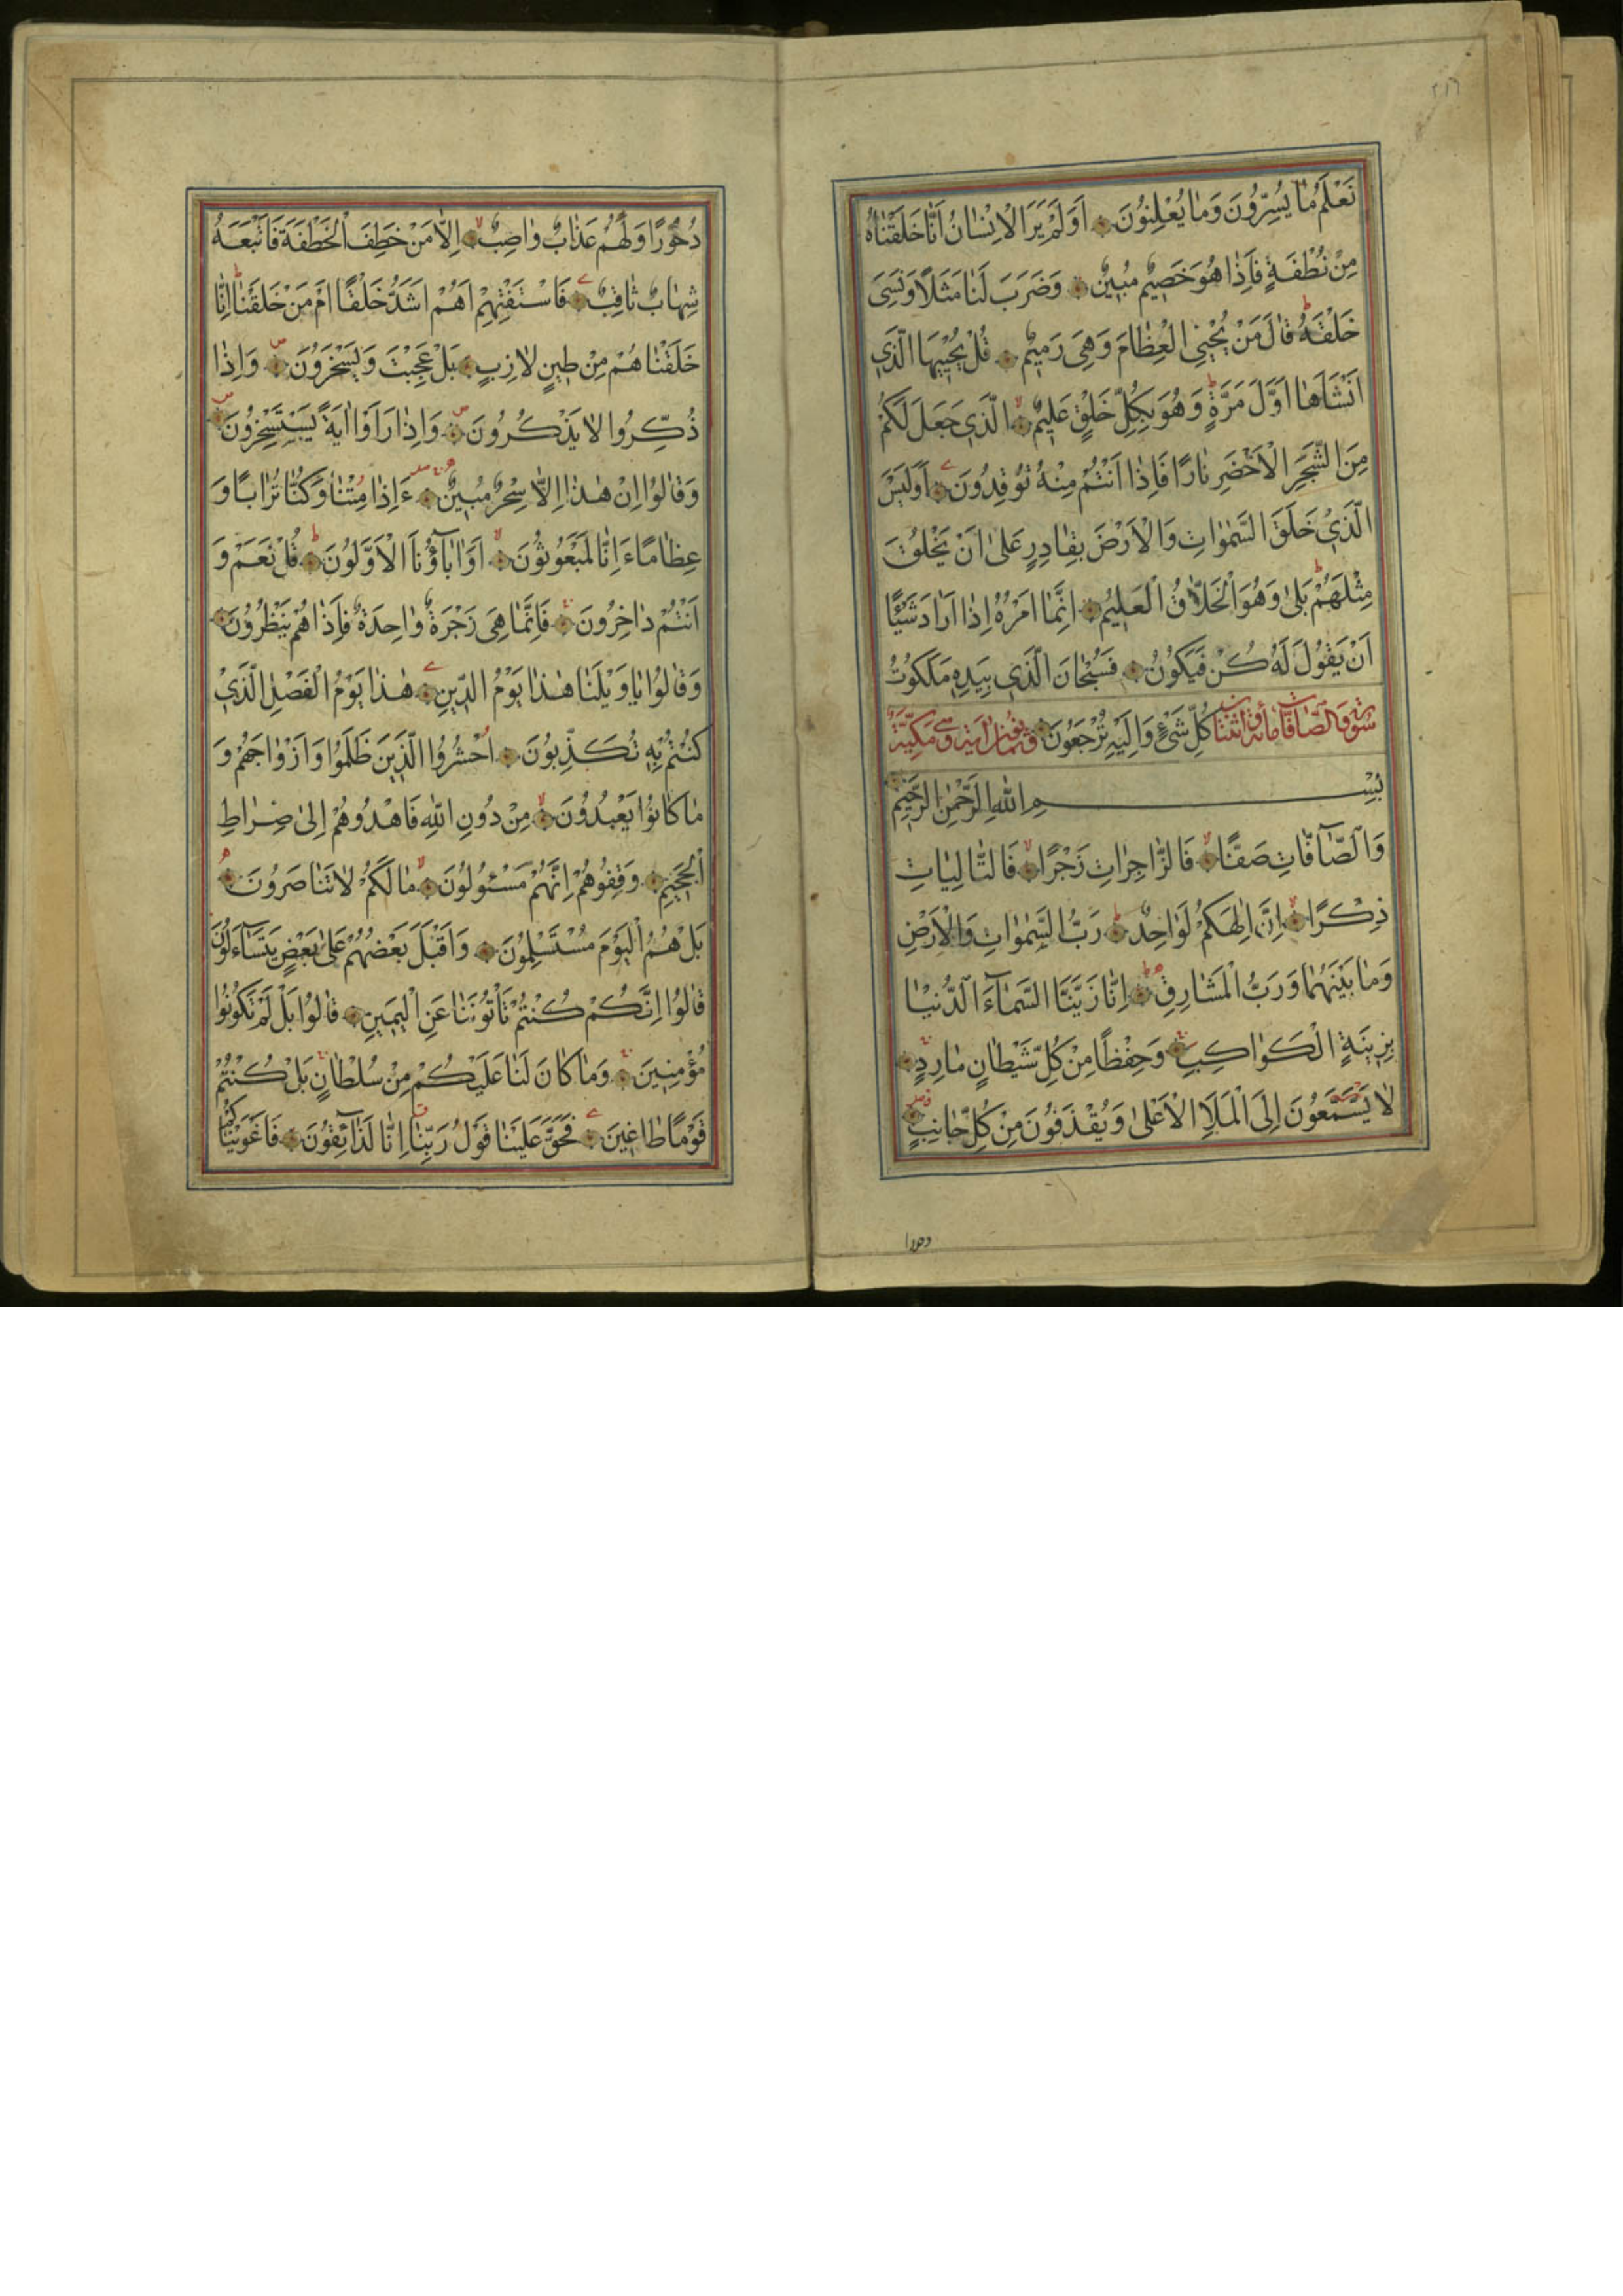 ٢١٦
نَعْلَمُ مَا يُسِرُّونَ وَمَا يُعْلِنُونَ اَوَلَمْ يَرَ الْاِنْسَانُ اَنَّا خَلَقْنَاهُ
مِنْ نُطْفَةٍ فَاِذَا هُوَ خَصِيمٌ مُبِينٌ وَضَرَبَ لَنَا مَثَلًا وَنَسِىَ
خَلْقَهُ قَالَ مَنْ يُحْيِى الْعِظَامَ وَهِىَ رَمِيمٌ قُلْ يُحْيِيهَا الَّذِى
اَنْشَاَهَا اَوَّلَ مَرَّةٍ وَهُوَ بِكُلِّ خَلْقٍ عَلِيمٌ الَّذِى جَعَلَ لَكُمْ
مِنَ الشَّجَرِ الْاَخْضَرِ نَارًا فَاِذَا اَنْتُمْ مِنْهُ تُوقِدُونَ اَوَلَيْسَ
الَّذِى خَلَقَ السَّمٰوَاتِ وَالْاَرْضَ بِقَادِرٍ عَلٰى اَنْ يَخْلُقَ
مِثْلَهُمْ بَلٰى وَهُوَ الْخَلَّاقُ الْعَلِيمُ اِنَّمَا اَمْرُهُ اِذَا اَرَادَ شَيْئًا
اَنْ يَقُولَ لَهُ كُنْ فَيَكُونُ فَسُبْحَانَ الَّذِى بِيَدِهِ مَلَكُوتُ
سُورَةُ الصَّافَّاتِ مِائَةٌ وَاثْنَتَانِ كُلِّ شَىْءٍ وَاِلَيْهِ تُرْجَعُونَ وَثَمَانُونَ اٰيَةً وَهِىَ مَكِّيَّةٌ
بِسْمِ اللّٰهِ الرَّحْمٰنِ الرَّحِيمِ
وَالصَّٓافَّاتِ صَفًّا فَالزَّاجِرَاتِ زَجْرًا فَالتَّالِيَاتِ
ذِكْرًا اِنَّ اِلٰهَكُمْ لَوَاحِدٌ رَبُّ السَّمٰوَاتِ وَالْاَرْضِ
وَمَا بَيْنَهُمَا وَرَبُّ الْمَشَارِقِ اِنَّا زَيَّنَّا السَّمَٓاءَ الدُّنْيَا
بِزِينَةٍ الْكَوَاكِبِ وَحِفْظًا مِنْ كُلِّ شَيْطَانٍ مَارِدٍ
لَا يَسَّمَّعُونَ اِلَى الْمَلَاِ الْاَعْلٰى وَيُقْذَفُونَ مِنْ كُلِّ جَانِبٍ
دحورا
دُحُورًا وَلَهُمْ عَذَابٌ وَاصِبٌ اِلَّا مَنْ خَطِفَ الْخَطْفَةَ فَاَتْبَعَهُ
شِهَابٌ ثَاقِبٌ فَاسْتَفْتِهِمْ اَهُمْ اَشَدُّ خَلْقًا اَمْ مَنْ خَلَقْنَا اِنَّا
خَلَقْنَاهُمْ مِنْ طِينٍ لَازِبٍ بَلْ عَجِبْتَ وَيَسْخَرُونَ وَاِذَا
ذُكِّرُوا لَا يَذْكُرُونَ وَاِذَا رَاَوْا اٰيَةً يَسْتَسْخِرُونَ
وَقَالُوا اِنْ هٰذَا اِلَّا سِحْرٌ مُبِينٌ ءَاِذَا مِتْنَا وَكُنَّا تُرَابًا وَ
عِظَامًا ءَاِنَّا لَمَبْعُوثُونَ اَوَاٰبَٓاؤُنَا الْاَوَّلُونَ قُلْ نَعَمْ وَ
اَنْتُمْ دَاخِرُونَ فَاِنَّمَا هِىَ زَجْرَةٌ وَاحِدَةٌ فَاِذَا هُمْ يَنْظُرُونَ
وَقَالُوا يَا وَيْلَنَا هٰذَا يَوْمُ الدِّينِ هٰذَا يَوْمُ الْفَصْلِ الَّذِى
كُنْتُمْ بِهِ تُكَذِّبُونَ اُحْشُرُوا الَّذِينَ ظَلَمُوا وَاَزْوَاجَهُمْ وَ
مَا كَانُوا يَعْبُدُونَ مِنْ دُونِ اللّٰهِ فَاهْدُوهُمْ اِلٰى صِرَاطِ
الْجَحِيمِ وَقِفُوهُمْ اِنَّهُمْ مَسْئُولُونَ مَا لَكُمْ لَا تَنَاصَرُونَ
بَلْ هُمُ الْيَوْمَ مُسْتَسْلِمُونَ وَاَقْبَلَ بَعْضُهُمْ عَلٰى بَعْضٍ يَتَسَٓاءَلُونَ
قَالُوا اِنَّكُمْ كُنْتُمْ تَاْتُونَنَا عَنِ الْيَمِينِ قَالُوا بَلْ لَمْ تَكُونُوا
مُؤْمِنِينَ وَمَا كَانَ لَنَا عَلَيْكُمْ مِنْ سُلْطَانٍ بَلْ كُنْتُمْ
قَوْمًا طَاغِينَ فَحَقَّ عَلَيْنَا قَوْلُ رَبِّنَا اِنَّا لَذَٓائِقُونَ فَاَغْوَيْنَاكُمْ